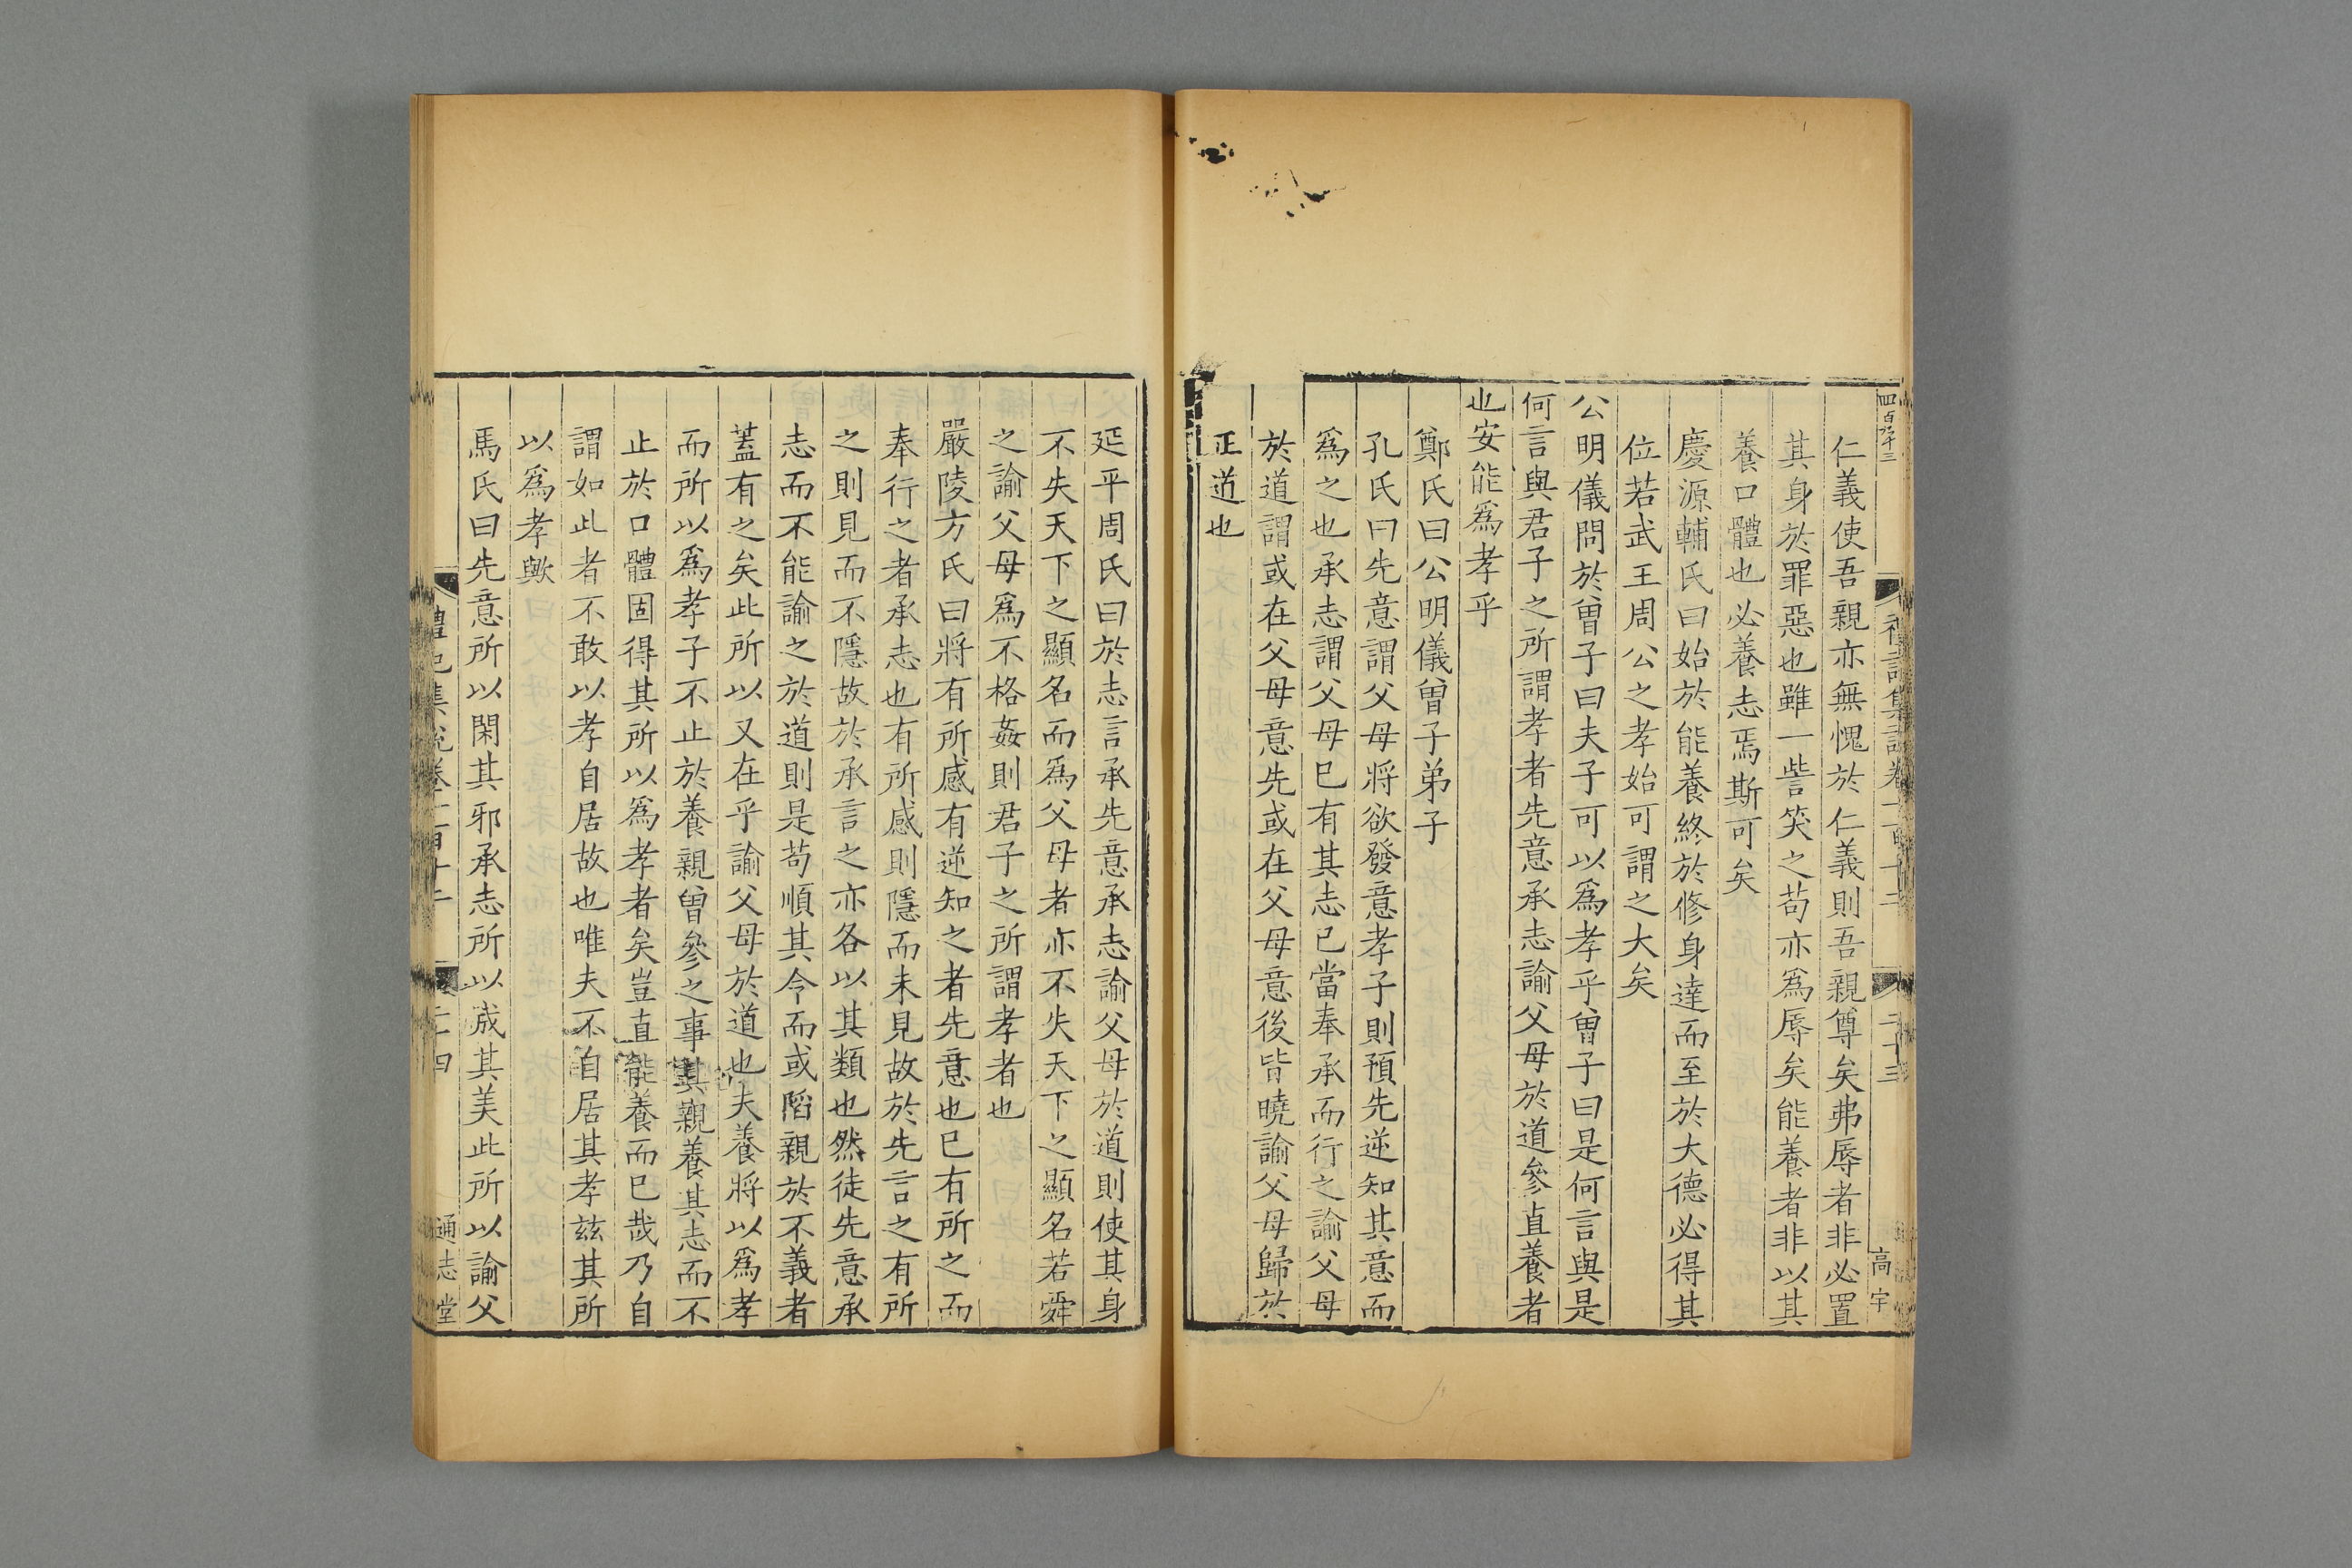 仁義使吾親亦無愧於仁義則吾親尊矣弗辱者非必置
其身於罪惡也雖一訾笑之苟亦爲辱矣能養者非以其
養口體也必養志焉斯可矣
慶源輔氏曰始於能養終於修身達而至於大德必得其
位若武王周公之孝始可謂之大矣
公明儀問於曾子曰夫子可以爲孝乎曾子曰是何言與是
何言與君子之所謂孝者先意承志諭父母於道參直養者
也安能爲孝乎
鄭氏曰公明儀曾子弟子
孔氏曰先意謂父母將欲發意孝子則預先逆知其意而
爲之也承志謂父母已有其志已當奉承而行之諭父母
於道謂或在父母意先或在父母意後皆曉諭父母歸於
正道也
高宇
延平周氏曰於志言承先意承志諭父母於道則使其身
不失天下之顯名而爲父母者亦不失天下之顯名若舜
之諭父母爲不格姦則君子之所謂孝者也
嚴陵方氏曰將有所感有逆知之者先意也已有所之而
奉行之者承志也有所感則隱而未見故於先言之有所
之則見而不隱故於承言之亦各以其類也然徒先意承
志而不能諭之於道則是苟順其令而或陷親於不義者
蓋有之矣此所以又在乎諭父母於道也夫養將以爲孝
而所以爲孝子不止於養親曾參之事其親養其志而不
止於口體固得其所以爲孝者矣豈直能養而已哉乃自
謂如此者不敢以孝自居故也唯夫不自居其孝玆其所
以爲孝歟
馬氏曰先意所以閑其邪承志所以成其美此所以諭父
二十四
通志堂